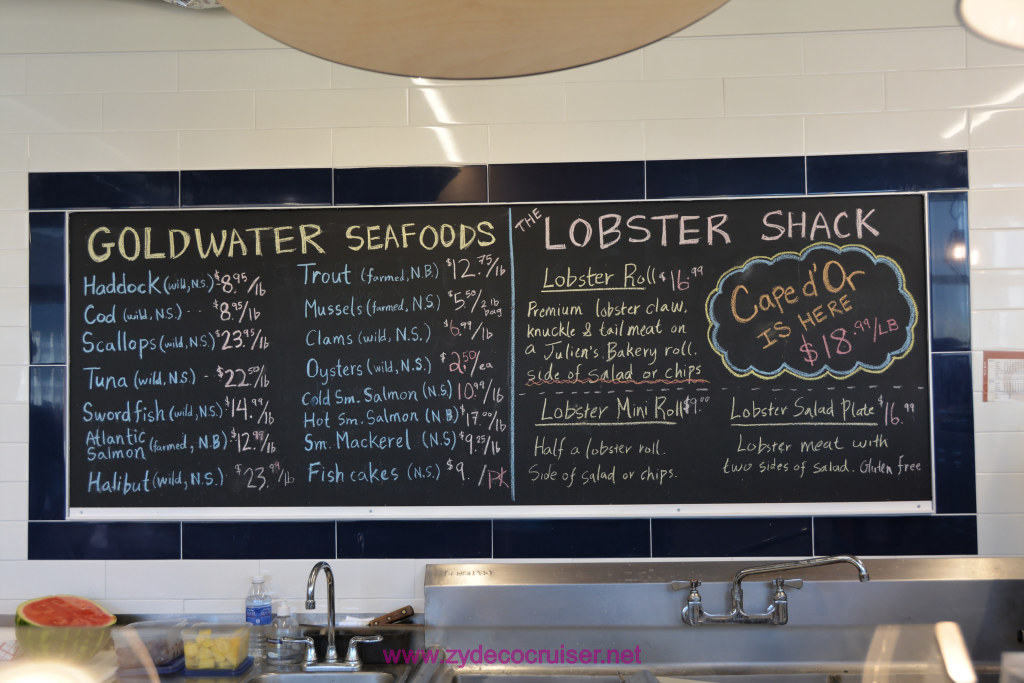 GOLDWATER SEAFOODS
Haddock (wild, N.S.) $8.95/lb
Cod (wild, N.S.) -- $8.95/lb
Scallops (wild, N.S.) $23.95/lb
Tuna (wild, N.S.) -- $22.50/lb
Swordfish (wild, N.S.) $14.99/lb
Atlantic
Salmon (farmed, N.B) $12.99/lb
Halibut (wild, N.S.) $23.99/lb
Trout (farmed, N.B.) $12.75/lb
Mussels (farmed, N.S.) $5.50/2 lb bag
Clams (wild, N.S.) $6.99/lb
Oysters (wild, N.S.) $2.50/ea
Cold Sm. Salmon (N.S.) 10.99/lb
Hot Sm. Salmon (N.B) $17.00/lb
Sm. Mackerel (N.S) $9.25/lb
Fish cakes (N.S.) $9. /PK
THE LOBSTER SHACK
Lobster Roll $16.99
Premium lobster claw,
knuckle & tail meat on
a Julien's Bakery roll.
side of salad or chips
Cape d'Or
IS HERE
$18.99/LB
Lobster Mini Roll $9.00
Half a lobster roll.
Side of salad or chips.
Lobster Salad Plate $16.99
Lobster meat with
two sides of salad. Gluten free
www.zydecocruiser.net